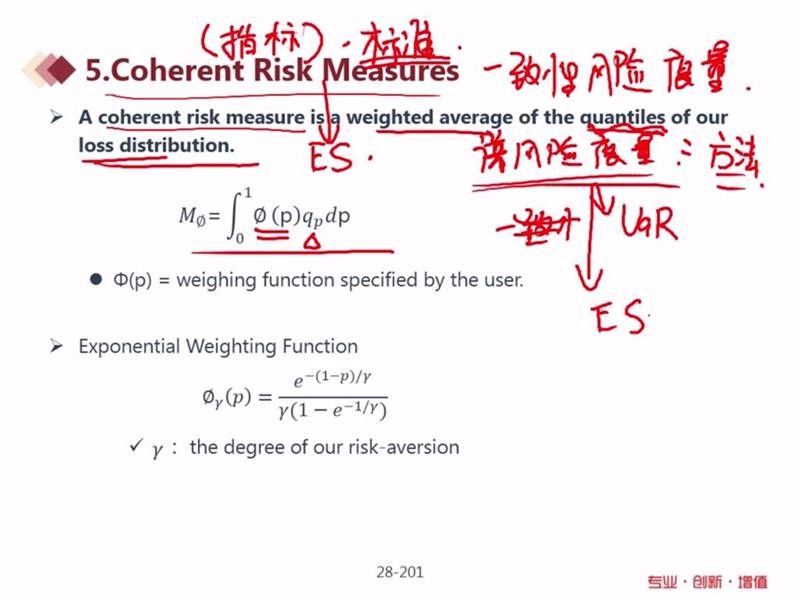 (指标)·标准.
5.Coherent Risk Measures
一致性风险度量.
➢ A coherent risk measure is a weighted average of the quantiles of our
loss distribution.
ES.
谱风险度量::方法.
M∅=∫₀¹∅(p)qₚdp
VaR
● Φ(p) = weighing function specified by the user.
ES
➢ Exponential Weighting Function
∅ᵧ(p) = e^{-(1-p)/γ} / γ(1 − e^{-1/γ})
✓ γ : the degree of our risk-aversion
28-201
专业·创新·增值